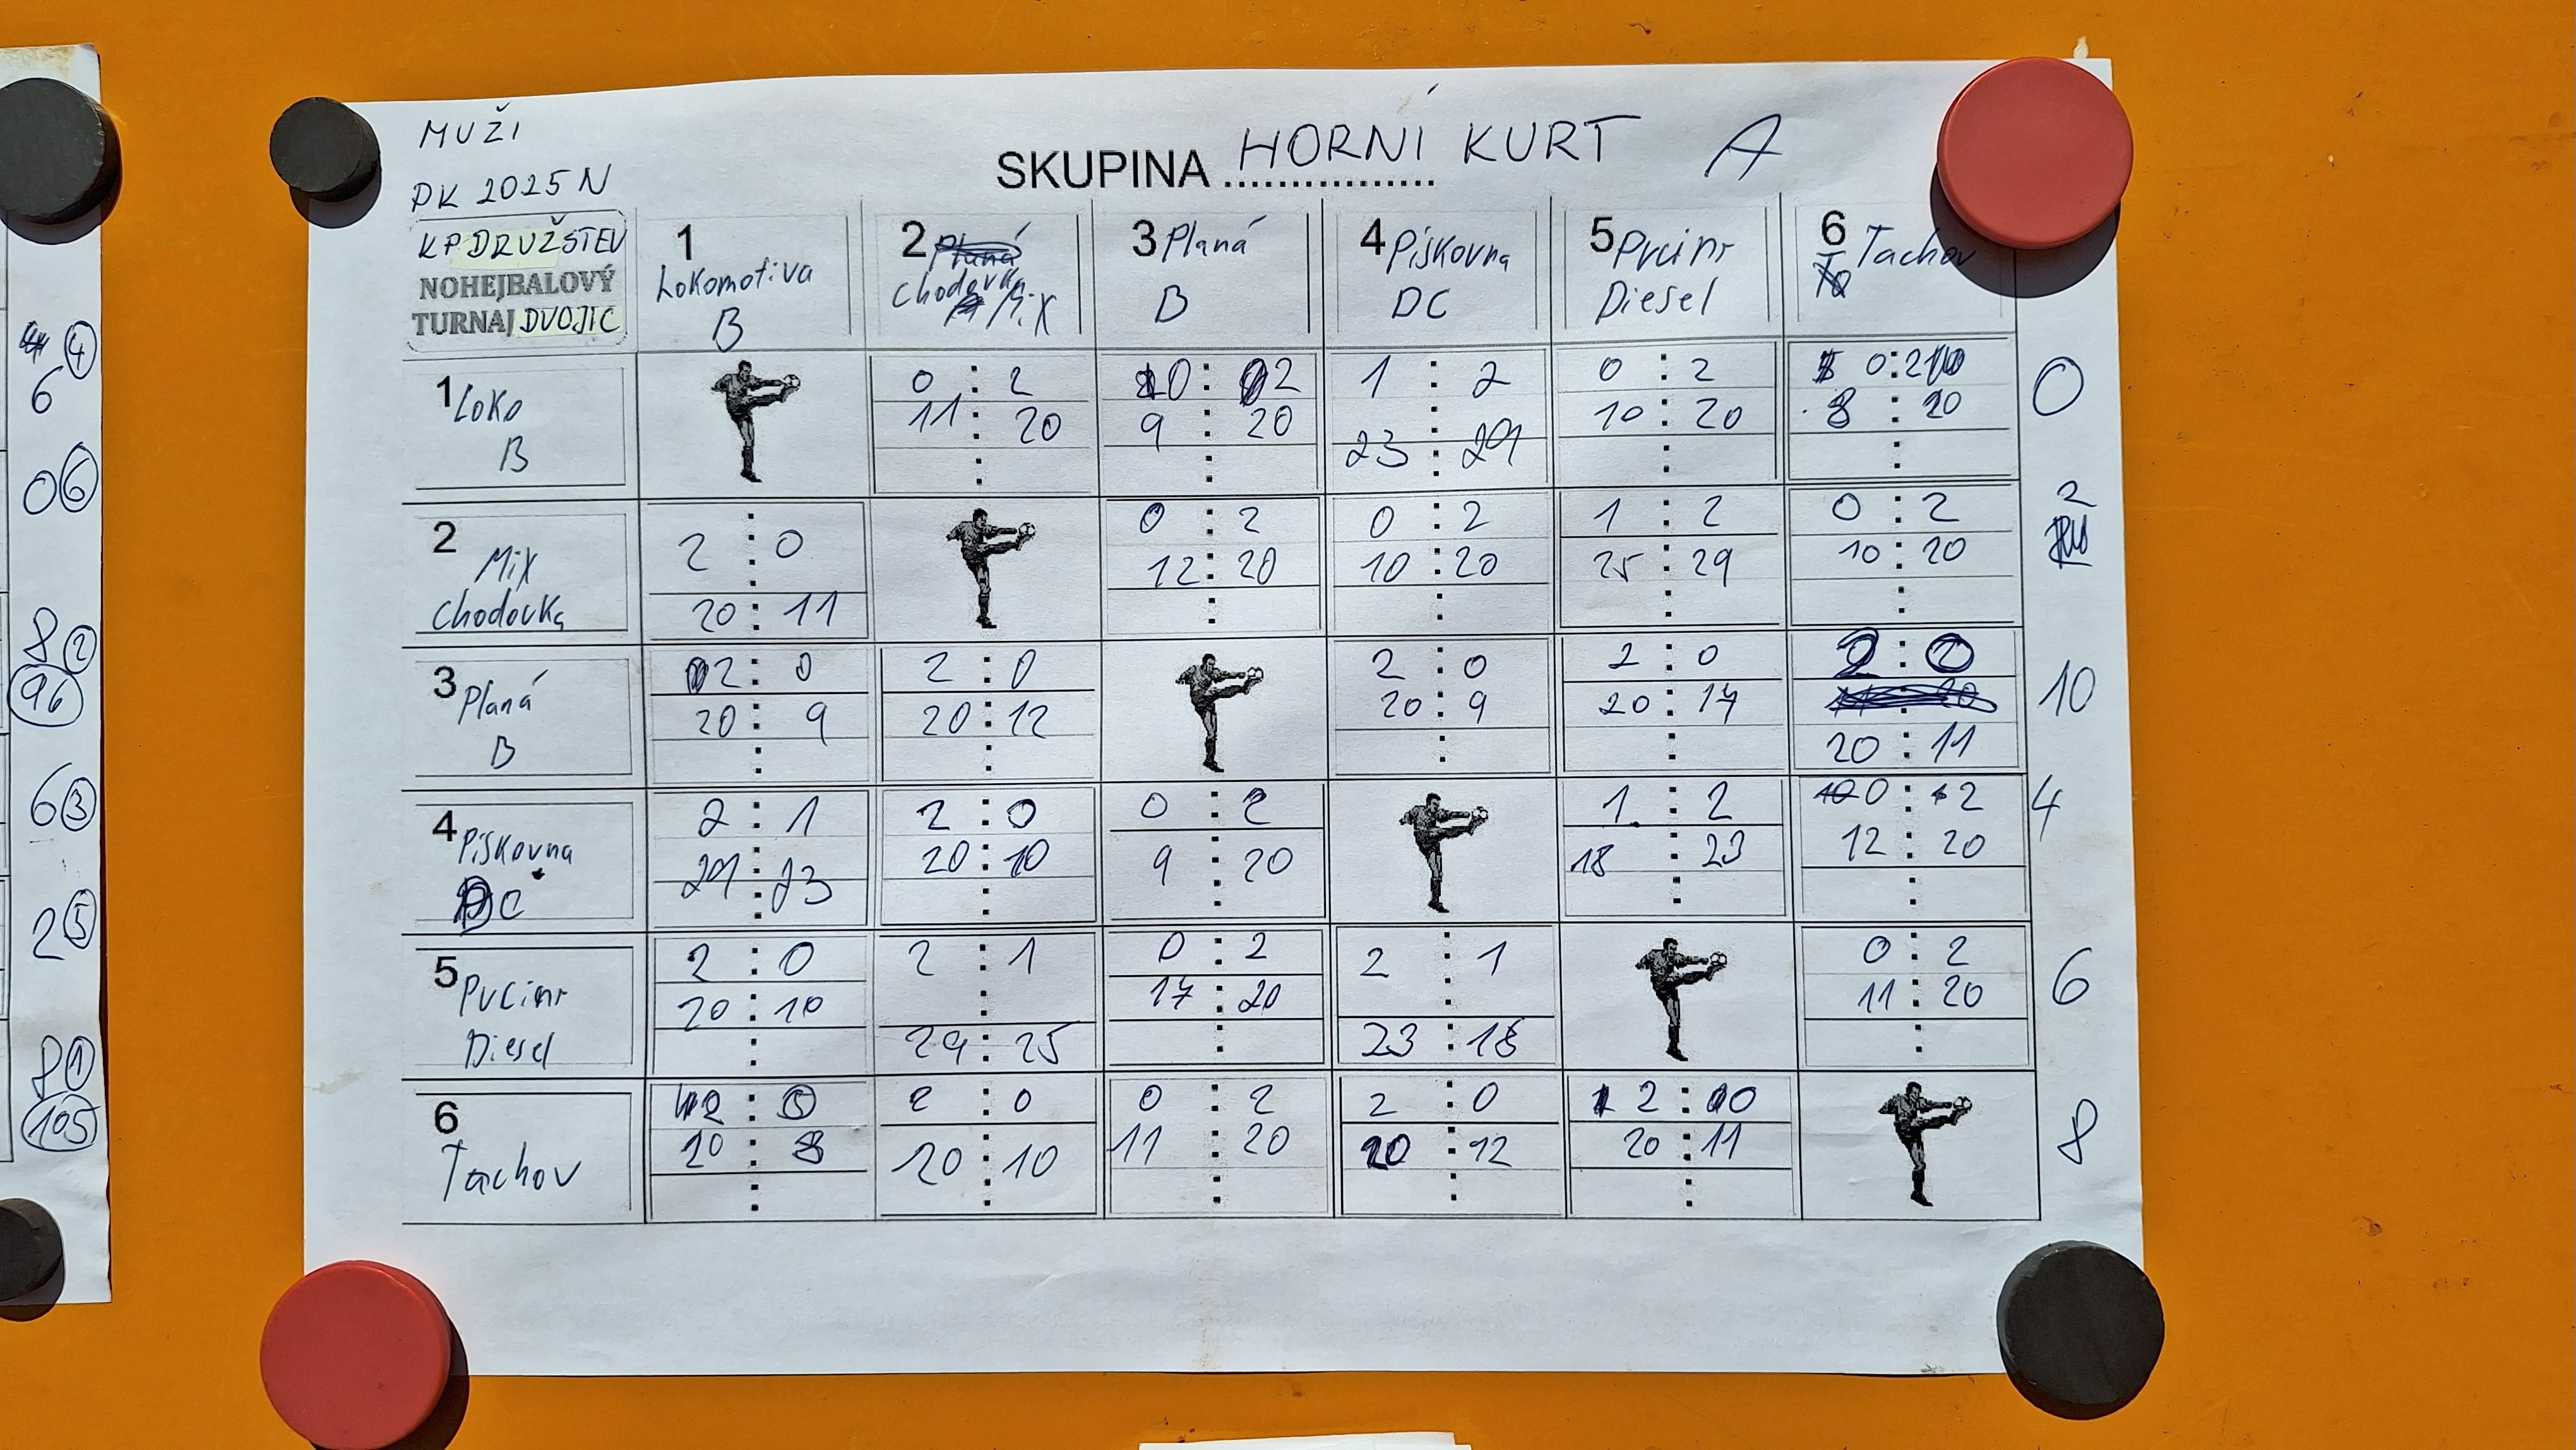 MUŽI
PK 2025 N
SKUPINA ................ HORNÍ KURT A
KP DRUŽSTEV
NOHEJBALOVÝ
TURNAJ DVOJIC
1 Lokomotiva B
2 Chodovka Mix
3 Planá B
4 Pískovna DC
5 Prcinr Diesel
6 Tachov
1 Loko B
0 : 2
11 : 20
0 : 2
9 : 20
1 : 2
23 : 29
0 : 2
10 : 20
0 : 2
8 : 20
0
2 Mix Chodovka
2 : 0
20 : 11
0 : 2
12 : 20
0 : 2
10 : 20
1 : 2
25 : 29
0 : 2
10 : 20
2
3 Planá B
2 : 0
20 : 9
2 : 0
20 : 12
2 : 0
20 : 9
2 : 0
20 : 17
2 : 0
20 : 11
10
4 Pískovna DC
2 : 1
29 : 23
2 : 0
20 : 10
0 : 2
9 : 20
1 : 2
18 : 23
0 : 2
12 : 20
4
5 Diesel
2 : 0
20 : 10
2 : 1
29 : 25
0 : 2
17 : 20
2 : 1
23 : 18
0 : 2
11 : 20
6
6 Tachov
2 : 0
20 : 8
2 : 0
20 : 10
0 : 2
11 : 20
2 : 0
20 : 12
2 : 0
20 : 11
8
4
6
0 6
8 2
96
6 3
2 5
8 1
105